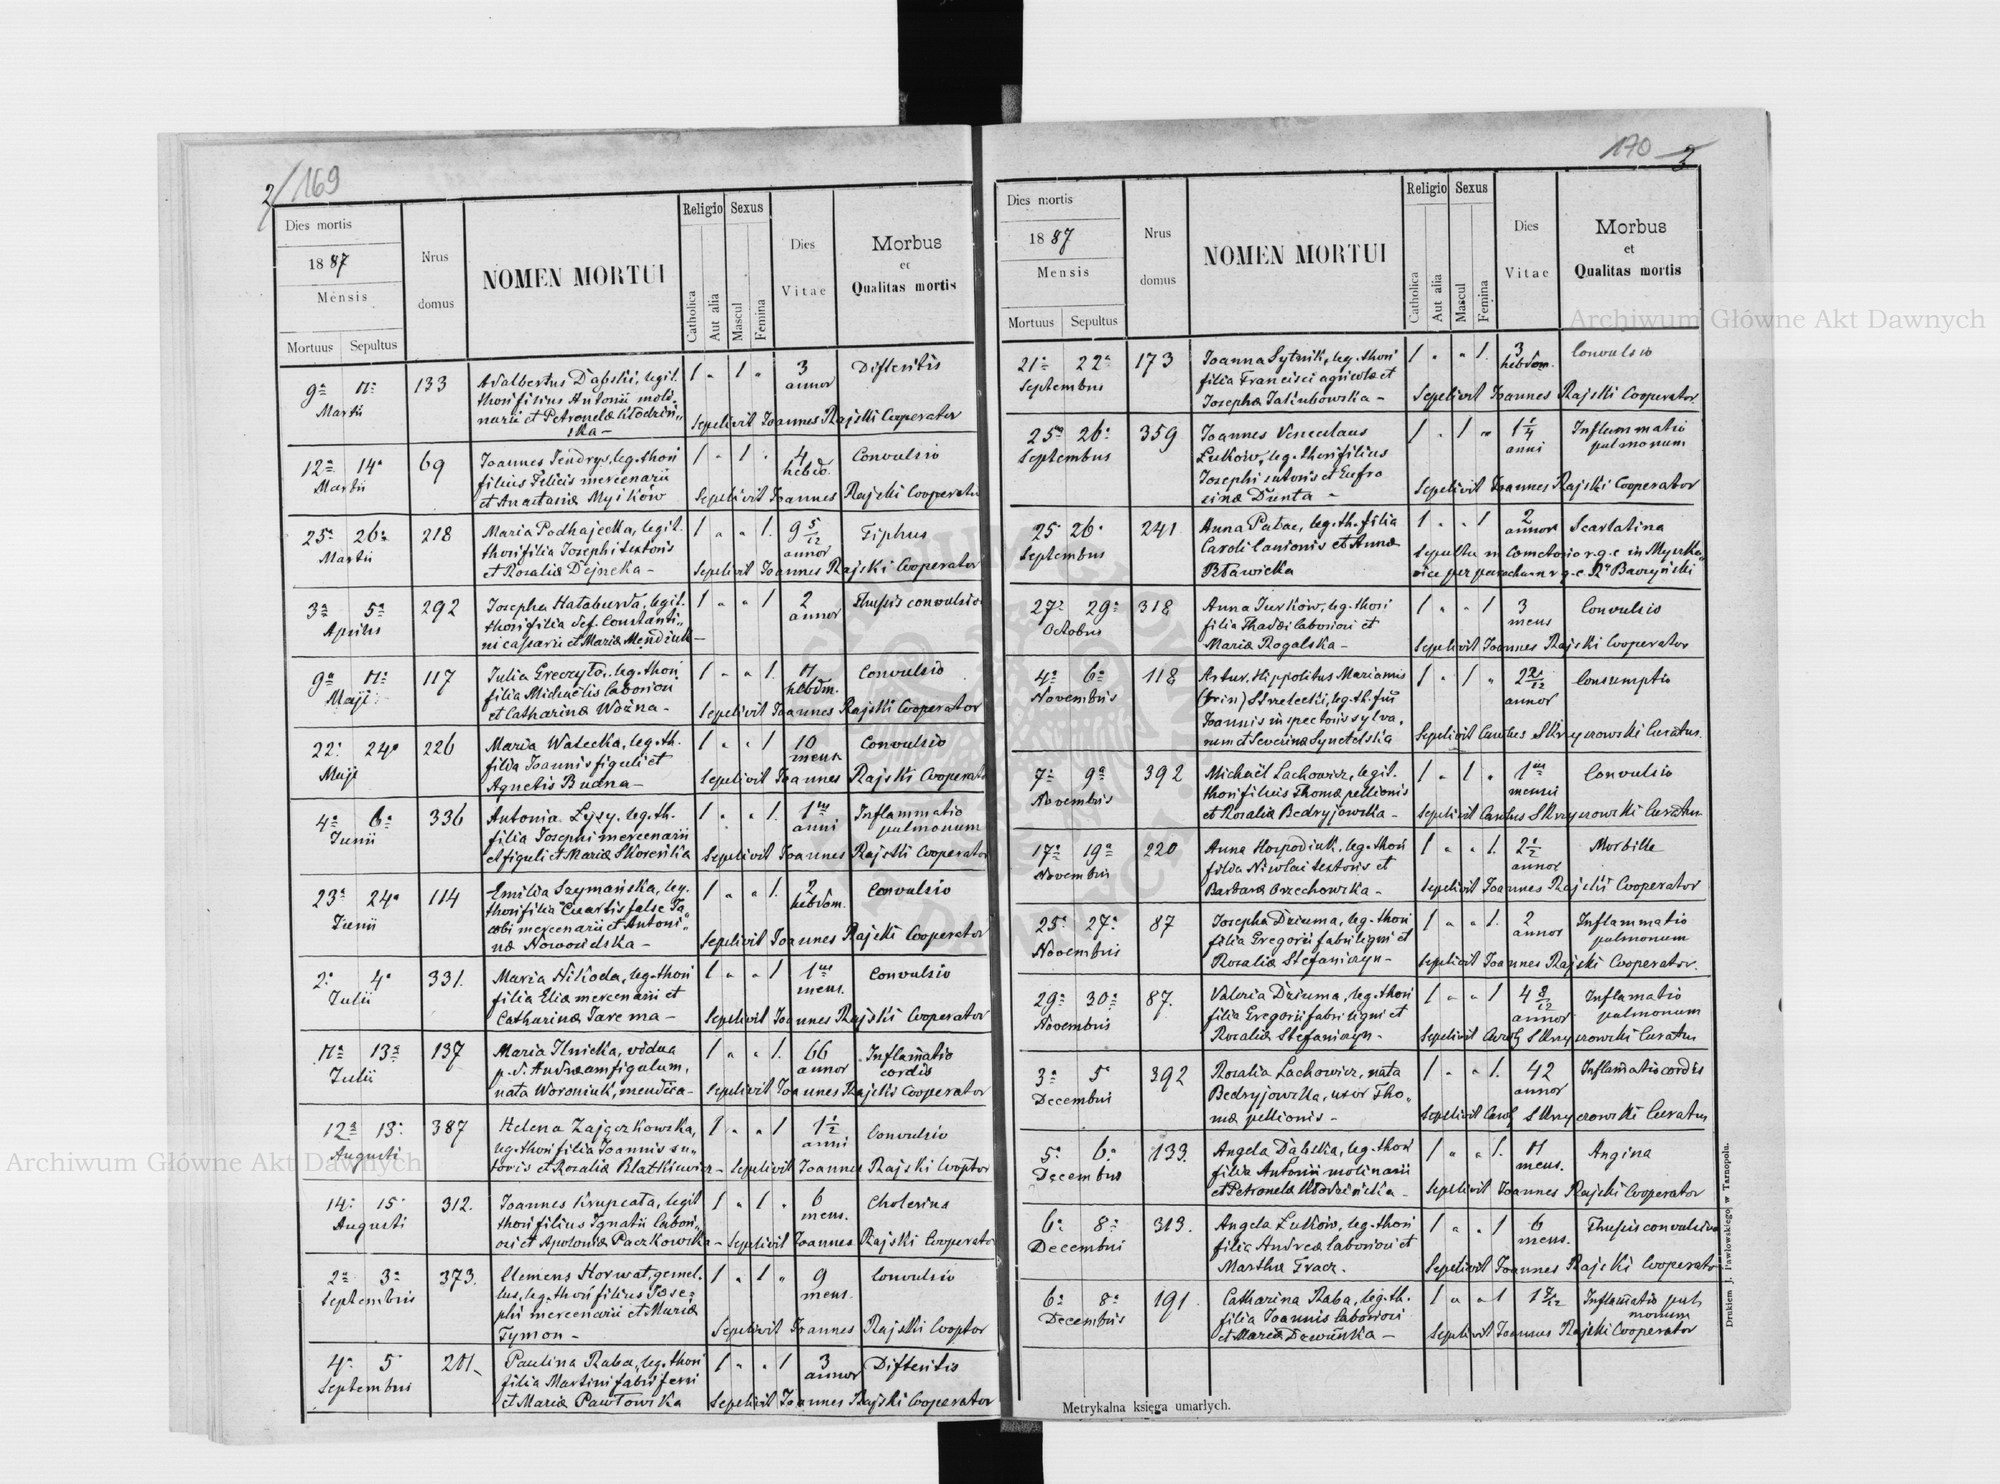 2/169
Dies mortis
1887
Mensis
Mortuus Sepultus
Nrus
domus
NOMEN MORTUI
Religio
Catholica
Aut alia
Sexus
Mascul
Femina
Dies
Vitae
Morbus
et
Qualitas mortis
9a 11a
Martii
133
Adalbertus Dąbski, legit.
thori filius Antonii moli„
narii et Petronelæ Włodzin„
ska –
1 „ 1 „
3
annor
Difteritis
Sepelivit Joannes Rajski Cooperator
12a 14a
Martii
69
Joannes Jendrys, leg. thori
filius Felicis mercenarii
et Anastasiæ Myików
1 „ 1 „
4
hebdo.
Convulsio
Sepelivit Joannes Rajski Cooperator
25a 26a
Martii
218
Maria Podhajecka, legit.
thori filia Josephi textoris
et Rosaliæ Dejneka –
1 „ „ 1.
9 5/12
annor
Tiphus
Sepelivit Joannes Rajski Cooperator
3a 5a
Aprilis
292
Josepha Hałaburda, legit.
thori filia def. Constanti„
ni casarii et Mariæ Mendiuk –
1 „ „ 1
2
annor
Thusis convulsiva
9a 11a
Maji
117
Julia Greczyło, leg. thori
filia Michaelis laboriosi
et Catharinæ Woźna –
1 „ „ 1.
11
hebdm.
Convulsio
Sepelivit Joannes Rajski Cooperator
22a 24a
Maji
226
Maria Watecka, leg. th.
filia Joannis figuli et
Agnetis Budna –
1 „ „ 1
10
mens
Convulsio
Sepelivit Joannes Rajski Cooperator
4a 6a
Junii
336
Antonia Łyzy, leg. th.
filia Josephi mercenarii
et figuli et Mariæ Skoreńka
1 „ „ 1.
1us
anni
Inflammatio
pulmonum
Sepelivit Joannes Rajski Cooperator
23a 24a
Junii
114
Emilia Szymańska, leg.
thori filia Cuartis false Ja„
cobi mercenarii et Antoni„
næ Nowosielska –
1 „ „ 1.
2
hebdom.
Convulsio
Sepelivit Joannes Rajski Cooperator
2a 4a
Julii
331.
Maria Nikoda, leg. thori
filia Eliæ mercenarii et
Catharinæ Jarema –
1 „ „ 1
1us
mens.
Convulsio
Sepelivit Joannes Rajski Cooperator
11a 13a
Julii
137
Maria Ilnicka, vidua
p. d. Andream figulum,
nata Woroniuk, mendica –
1 „ „ 1.
66
annor
Inflamatio
cordis
Sepelivit Joannes Rajski Cooperator
12a 13a
Augusti
387
Helena Zajączkowska,
leg. thori filia Joannis su„
toris et Rosaliæ Blatkiewicz –
1 „ „ 1
1 1/2
anni
Convulsio
Sepelivit Joannes Rajski Cooptor
14a 15a
Augusti
312.
Joannes Krupcata, legit
thori filius Ignatii labori„
osi et Apoloniæ Paczkowska –
1 „ 1 „
6
mens.
Cholerina
Sepelivit Joannes Rajski Cooperator
2a 3a
Septembris
373.
Clemens Horwat, gemel„
lus, leg. thori filius Jose„
phi mercenarii et Mariæ
Tymon –
1 „ 1 „
9
mens.
Convulsio
Sepelivit Joannes Rajski Cooptor
4a 5
Septembris
201 –
Paulina Raba, leg. thori
filia Martini fabri ferri
et Mariæ Pawłowska
1 „ „ 1
3
annor
Difteritis
Sepelivit Joannes Rajski Cooperator
170 3
Dies mortis
1887
Mensis
Mortuus Sepultus
Nrus
domus
NOMEN MORTUI
Religio
Catholica
Aut alia
Sexus
Mascul
Femina
Dies
Vitae
Morbus
et
Qualitas mortis
21a 22a
Septembris
173
Joanna Sytnik, leg. thori
filia Francisci agricolæ et
Josephæ Jakubowska –
1 „ „ 1.
3
hebdom.
Convulsio
Sepelivit Joannes Rajski Cooperator
25a 26a
Septembris
359
Joannes Venceslaus
Łuków, leg. thori filius
Josephi sutoris et Eufro
sinæ Dunta –
1 „ 1 „
1 1/4
anni
Inflammatio
pulmonum
Sepelivit Joannes Rajski Cooperator
25 26a
Septembris
241
Anna Pałac, leg. th. filia
Caroli lanionis et Annæ
Bławicka
1 „ „ 1
2
annor
Scarlatina
Sepulta in Cometerio r. g. c. in Myszko„
vice per parochum r. g. c. Rd Baczyński
27a 29a
Octobris
318
Anna Jurków, leg. thori
filia Thadæi laboriosi et
Mariæ Rogalska –
1 „ „ 1
3
mens
Convulsio
Sepelivit Joannes Rajski Cooperator
4a 6a
Novembris
118
Artur, Hippolitus Mariamis
(trin) Strzelecki, leg. th. fiůs
Joannis inspectoris sylva„
rum et Severinæ Synetelska
1 „ 1 „
2 2/12
annor
Consumptio
Sepelivit Carolus Skrzyczowski Curatus.
7a 9a
Novembris
392
Michaël Lachowicz, legit.
thori filius Thomæ pellionis
et Rosaliæ Bedryjowska –
1 „ 1 „
1us
mensis
Convulsio
Sepelivit Carolus Skrzyczowski Curatus
17a 19a
Novembris
220
Anna Hospodiuk, leg. thori
filia Nicolai textoris et
Barbaræ Orzechowska –
1 „ „ 1.
2 1/2
annor
Morbille
Sepelivit Joannes Rajski Cooperator
25a 27a
Novembris
87
Josepha Dziuma, leg. thori
filia Gregorii fabri ligni et
Rosaliæ Stefaniszyn –
1 „ „ 1.
2
annor
Inflammatio
pulmonum
Sepelivit Joannes Rajski Cooperator.
29a 30a
Novembris
87.
Valeria Dziuma, leg. thori
filia Gregorii fabri ligni et
Rosaliæ Stefaniszyn –
1 „ „ 1
4 8/12
annor
Inflamatio
pulmonum
Sepelivit Carolq Skrzyczowski Curatus
3a 5
Decembris
392
Rosalia Lachowicz, nata
Bedryjowska, uxor Tho„
mæ pellionis –
1 „ „ 1.
42
annor
Inflamatio cordis
Sepelivit Carolq Skrzyczowski Curatus
5a 6a
Decembris
133.
Angela Dąbska, leg. thori
filia Antonii molinarii
et Petronelæ Włodzińska –
1 „ „ 1.
11
mens.
Angina
Sepelivit Joannes Rajski Cooperator
6a 8a
Decembris
313.
Angela Łuków, leg. thori
filia Andreæ laboriosi et
Marthæ Tracz.
1 „ „ 1
6
mens.
Thusis convulsiva
Sepelivit Joannes Rajski Cooperator
6a 8a
Decembris
191.
Catharina Raba, leg. th.
filia Joannis laboriosi
et Mariæ Dzwinka –
1 „ „ 1
1 8/12
Inflamatio pul„
monum
Sepelivit Joannes Rajski Cooperator
Metrykalna księga umarłych.
Drukiem J. Pawłowskiego w Tarnopolu.
Archiwum Główne Akt Dawnych
Archiwum Główne Akt Dawnych